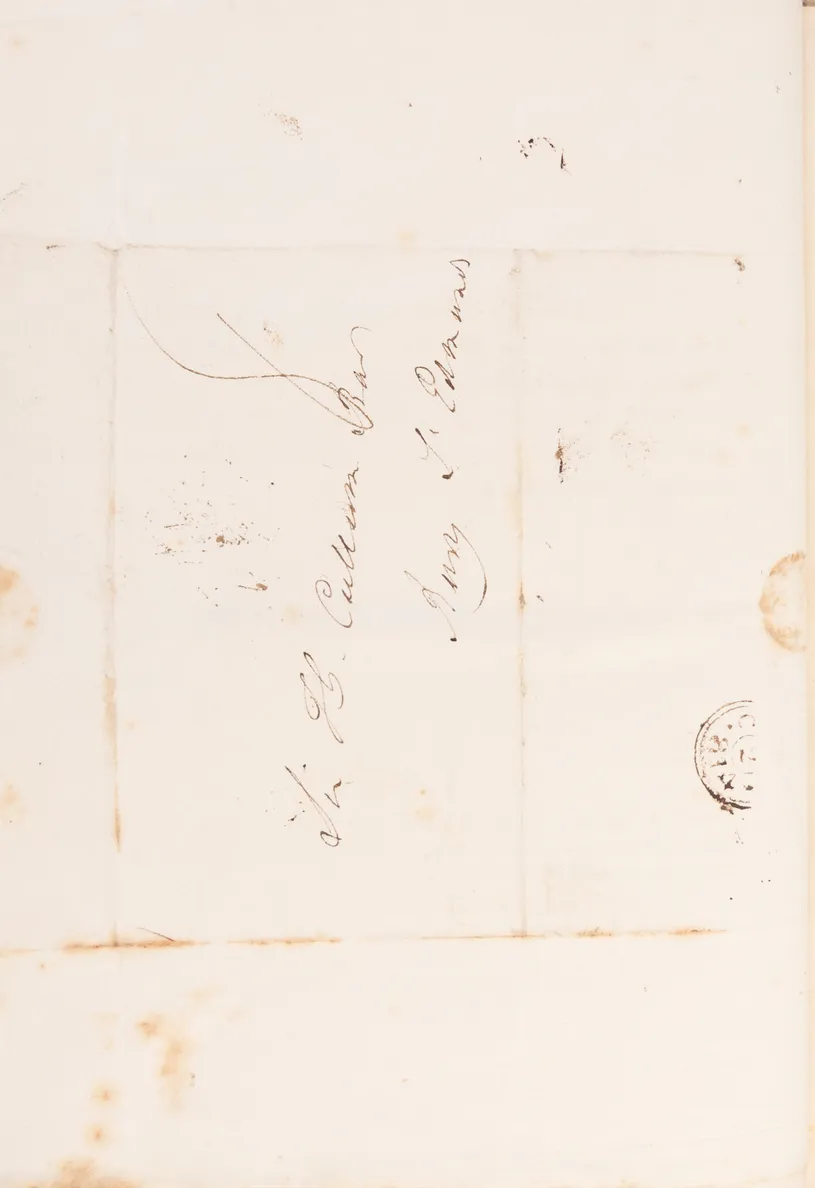 Sir H. Cullum Bar
Bury St Edmunds